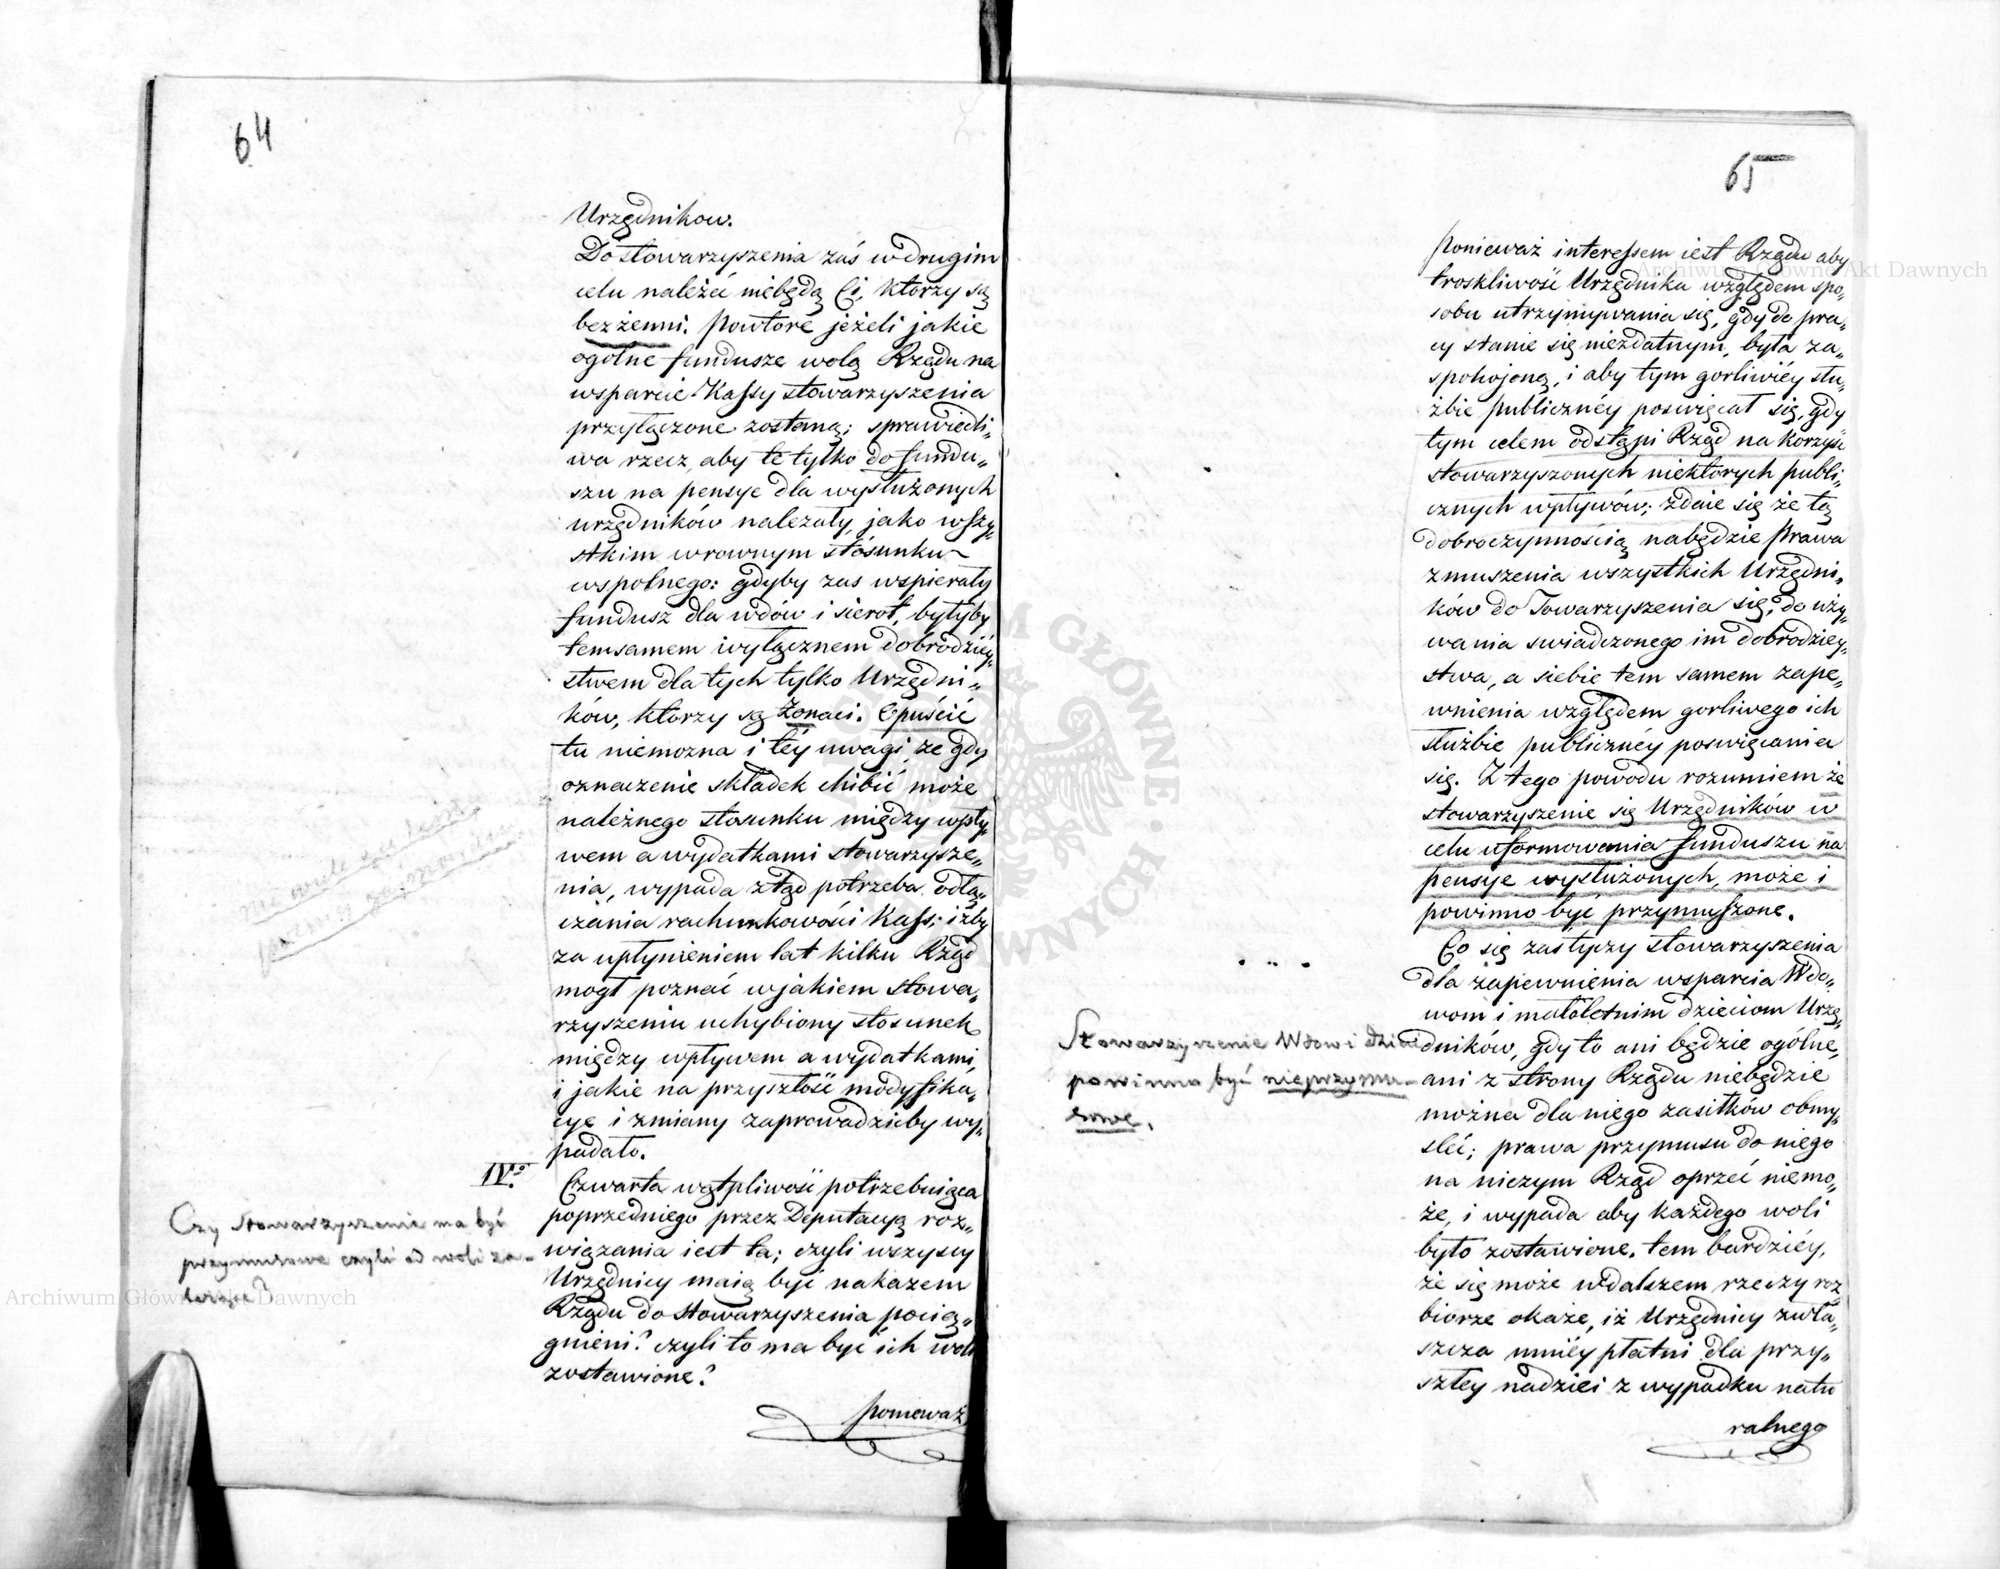 64
Urzędnikow.
Do stowarzyszenia zaś w drugim
celu należeć niebędą Ci, ktorzy są
bezżenni. Powtore jeżeli jakie
ogolne fundusze wolą Rzędu na
wsparcie Kassy stowarzyszenia
przyłączone zostaną; sprawiedli„
wa rzecz, aby te tylko do fundu„
szu na pensye dla wysłużonych
urzędników należały, jako wszy„
stkim w rownym stósunku
wspolnego: gdyby zas wspierały
fundusz dla wdów i sierot, byłyby
temsamem wyłącznem dobrodziéy„
stwem dla tych tylko Urzędni„
ków, ktorzy są żonaci. Opuścić
tu niemozna i téy uwagi, ze gdy
oznaczenie składek chibić może
należnego stosunku między wpły„
wem a wydatkami stowarzysze„
nia, wypada ztąd potrzeba odłą„
czania rachunkowości Kass; iżby
za upłynieniem lat kilku Rząd
mogł poznać w jakiem stowa„
rzyszeniu uchybiony stosunek
między wpływem a wydatkami,
i jakie na przyszłość modyfika„
cye i zmiany zaprowadzićby wy„
padało.
IVo.
Czwarta wątpliwość potrzebuiąca
poprzedniego przez Deputacyą roz„
wiązania iest ta; czyli wszyscy
Urzędnicy maią być nakazem
Rządu do stowarzyszenia pocią„
gnieni? czyli to ma być ich woli
zostawione?
Ponieważ
Czy Stowarzyszenie ma być
przymusowe czyli od woli za-
leżące?
65
Ponieważ interessem iest Rządu aby
troskliwość Urzędnika względem spo„
sobu utrzymywania się, gdy do pra„
cy stanie się niezdatnym, była za„
spokojoną, i aby tym gorliwiéy słu„
żbie publicznéy poswięcał się, gdy
tym celem odstąpi Rząd na korzyść
stowarzyszonych niektorych publi„
cznych wpływów; zdaie się że tą
dobroczynnością nabędzie Prawa
zmuszenia wszystkich Urzędni„
ków do Towarzyszenia się, do uży„
wania swiadczonego im dobrodziey„
stwa, a siebie tem samem zape„
wnienia względem gorliwego ich
służbie publicznéy poswięcania
się. Z tego powodu rozumiem że
stowarzyszenie się Urzędników w
celu uformowania funduszu na
pensye wysłużonych, może i
powinno być przymuszone.
Co się zas tyczy stowarzyszenia
dla zapewnienia wsparcia Wdo„
wom i małoletnim dzieciom Urzę„
dników, gdy to ani będzie ogólne,
ani z strony Rządu niebędzie
można dla niego zasiłków obmy„
sléć; prawa przymusu do niego
na niczym Rząd oprzéć niemo„
że, i wypada aby każdego woli
było zostawione, tem bardziéy,
że się może w dalszem rzeczy roz„
biorze okaże, iż Urzędnicy zwła„
szcza mniéy płatni dla przy„
szłey nadziei z wypadku natu
ralnego
Stowarzyszenie Wdow i dzieci
powinno być nieprzymu-
sowe.
Archiwum Główne Akt Dawnych
Archiwum Główne Akt Dawnych